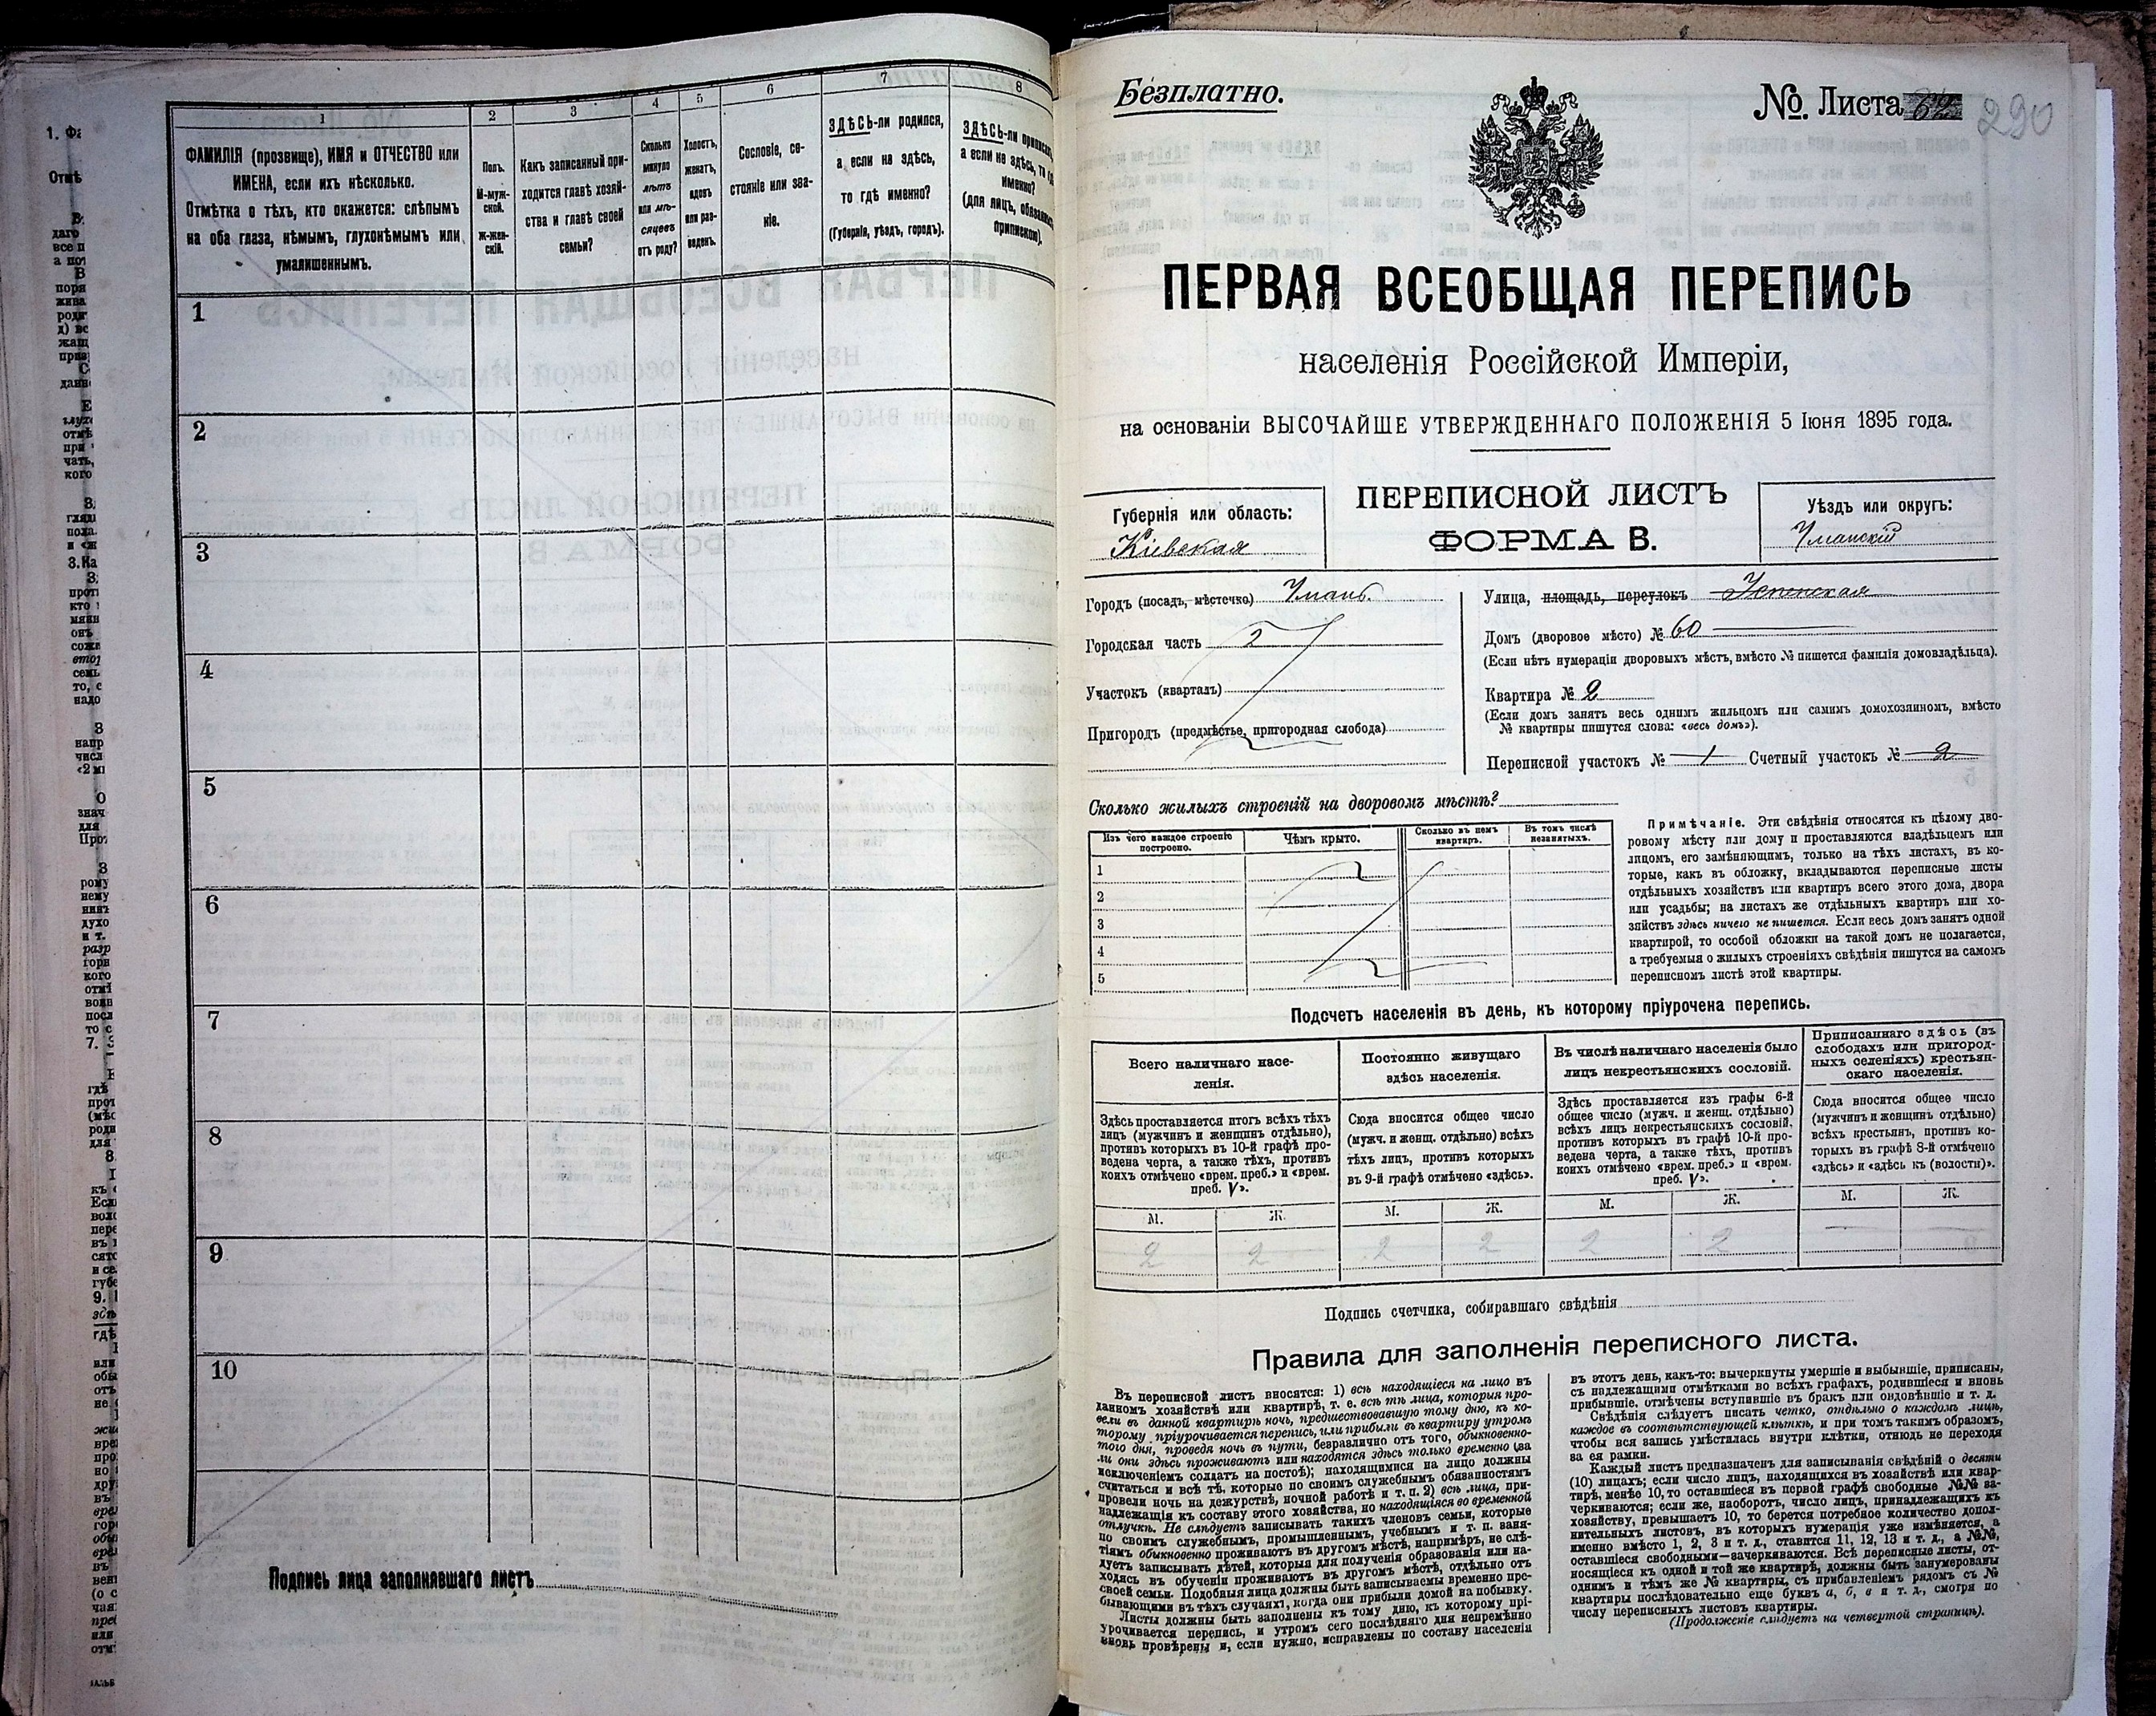 1
2
3
4
5
6
7
8
ФАМИЛІЯ (прозвище), ИМЯ и ОТЧЕСТВО или
ИМЕНА, если ихъ нѣсколько.
Отмѣтка о тѣхъ, кто окажется: слѣпымъ
на оба глаза, нѣмымъ, глухонѣмымъ или
умалишеннымъ.
Полъ.
М-муж-
ской.
Ж-жен-
скій.
Какъ записанный при-
ходится главѣ хозяй-
ства и главѣ своей
семьи?
Сколько
минуло
лѣтъ
или мѣ-
сяцевъ
отъ роду?
Холостъ,
женатъ,
вдовъ
или раз-
веденъ.
Сословіе, со-
стояніе или зва-
ніе.
ЗДѢСЬ-ли родился,
а если не здѣсь,
то гдѣ именно?
(Губернія, уѣздъ, городъ).
ЗДѢСЬ-ли приписанъ,
а если не здѣсь, то гдѣ
именно?
(для лицъ, обязанныхъ
припискою).
1
2
3
4
5
6
7
8
9
10
Подпись лица заполнявшаго листъ
Безплатно.
№. Листа 62 290
ПЕРВАЯ ВСЕОБЩАЯ ПЕРЕПИСЬ
населенія Россійской Имперіи,
на основаніи ВЫСОЧАЙШЕ УТВЕРЖДЕННАГО ПОЛОЖЕНІЯ 5 Іюня 1895 года.
ПЕРЕПИСНОЙ ЛИСТЪ
ФОРМА В.
Губернія или область:
Кіевская
Уѣздъ или округъ:
Уманскій
Городъ (посадъ, мѣстечко) Умань.
Городская часть 2
Участокъ (кварталъ)
Пригородъ (предмѣстье, пригородная слобода)
Улица, площадь, переулокъ Успенская
Домъ (дворовое мѣсто) № 60
(Если нѣтъ нумераціи дворовыхъ мѣстъ, вмѣсто № пишется фамилія домовладѣльца).
Квартира № 2
(Если домъ занятъ весь однимъ жильцомъ или самимъ домохозяиномъ, вмѣсто
№ квартиры пишутся слова: «весь домъ»).
Переписной участокъ № 1 Счетный участокъ № 2
Сколько жилыхъ строеній на дворовомъ мѣстѣ?
Изъ чего каждое строеніе
построено.
Чѣмъ крыто.
Сколько въ немъ
квартиръ.
Въ томъ числѣ
незанятыхъ.
1
2
3
4
5
Примѣчаніе. Эти свѣдѣнія относятся къ цѣлому дво-
ровому мѣсту или дому и проставляются владѣльцемъ или
лицомъ, его замѣняющимъ, только на тѣхъ листахъ, въ ко-
торые, какъ въ обложку, вкладываются переписные листы
отдѣльныхъ хозяйствъ или квартиръ всего этого дома, двора
или усадьбы; на листахъ же отдѣльныхъ квартиръ или хо-
зяйствъ здѣсь ничего не пишется. Если весь домъ занятъ одной
квартирой, то особой обложки на такой домъ не полагается,
а требуемыя о жилыхъ строеніяхъ свѣдѣнія пишутся на самомъ
переписномъ листѣ этой квартиры.
Подсчетъ населенія въ день, къ которому пріурочена перепись.
Всего наличнаго насе-
ленія.
Постоянно живущаго
здѣсь населенія.
Въ числѣ наличнаго населенія было
лицъ некрестьянскихъ сословій.
Приписаннаго здѣсь (въ
слободахъ или пригород-
ныхъ селеніяхъ) крестьян-
скаго населенія.
Здѣсь проставляется итогъ всѣхъ тѣхъ
лицъ (мужчинъ и женщинъ отдѣльно),
противъ которыхъ въ 10-й графѣ про-
ведена черта, а также тѣхъ, противъ
коихъ отмѣчено «врем. преб.» и «врем.
преб. V».
Сюда вносится общее число
(мужч. и женщ. отдѣльно) всѣхъ
тѣхъ лицъ, противъ которыхъ
въ 9-й графѣ отмѣчено «здѣсь».
Здѣсь проставляется изъ графы 6-й
общее число (мужч. и женщ. отдѣльно)
всѣхъ лицъ некрестьянскихъ сословій,
противъ которыхъ въ графѣ 10-й про-
ведена черта, а также тѣхъ, противъ
коихъ отмѣчено «врем. преб.» и «врем.
преб. V».
Сюда вносится общее число
(мужчинъ и женщинъ отдѣльно)
всѣхъ крестьянъ, противъ ко-
торыхъ въ графѣ 8-й отмѣчено
«здѣсь» и «здѣсь къ (волости)».
М. Ж. М. Ж. М. Ж. М. Ж.
2 2 2 2 2 2
Подпись счетчика, собиравшаго свѣдѣнія
Правила для заполненія переписного листа.
Въ переписной листъ вносятся: 1) всѣ находящіеся на лицо въ
данномъ хозяйствѣ или квартирѣ, т. е. всѣ тѣ лица, которыя про-
вели въ данной квартирѣ ночь, предшествовавшую тому дню, къ ко-
торому пріурочивается перепись, или прибыли въ квартиру утромъ
того дня, проведя ночь въ пути, безразлично отъ того, обыкновенно-
ли они здѣсь проживаютъ или находятся здѣсь только временно (за
исключеніемъ солдатъ на постоѣ); находящимися на лицо должны
считаться и всѣ тѣ, которые по своимъ служебнымъ обязанностямъ
провели ночь на дежурствѣ, ночной работѣ и т. п. 2) всѣ лица, при-
надлежащія къ составу этого хозяйства, но находящіяся во временной
отлучкѣ. Не слѣдуетъ записывать такихъ членовъ семьи, которые
по своимъ служебнымъ, промышленнымъ, учебнымъ и т. п. заня-
тіямъ обыкновенно проживаютъ въ другомъ мѣстѣ, напримѣръ, не слѣ-
дуетъ записывать дѣтей, которыя для полученія образованія или на-
ходясь въ обученіи проживаютъ въ другомъ мѣстѣ, отдѣльно отъ
своей семьи. Подобныя лица должны быть записываемы временно пре-
бывающими въ тѣхъ случаяхъ, когда они прибыли домой на побывку.
Листы должны быть заполнены къ тому дню, къ которому прі-
урочивается перепись, и утромъ сего послѣдняго дня непремѣнно
вновь провѣрены и, если нужно, исправлены по составу населенія
въ этотъ день, какъ-то: вычеркнуты умершіе и выбывшіе, приписаны,
съ надлежащими отмѣтками во всѣхъ графахъ, родившіеся и вновь
прибывшіе, отмѣчены вступившіе въ бракъ или овдовѣвшіе и т. д.
Свѣдѣнія слѣдуетъ писать четко, отдѣльно о каждомъ лицѣ,
каждое въ соотвѣтствующей клѣткѣ, и при томъ такимъ образомъ,
чтобы вся запись умѣстилась внутри клѣтки, отнюдь не переходя
за ея рамки.
Каждый листъ предназначенъ для записыванія свѣдѣній о десяти
(10) лицахъ; если число лицъ, находящихся въ хозяйствѣ или квар-
тирѣ, менѣе 10, то оставшіеся въ первой графѣ свободные №№ за-
черкиваются; если же, наоборотъ, число лицъ, принадлежащихъ къ
хозяйству, превышаетъ 10, то берется потребное количество допол-
нительныхъ листовъ, въ которыхъ нумерація уже измѣняется, а
именно вмѣсто 1, 2, 3 и т. д., ставится 11, 12, 13 и т. д., а №№,
оставшіеся свободными—зачеркиваются. Всѣ переписные листы, от-
носящіеся къ одной и той же квартирѣ, должны быть занумерованы
однимъ и тѣмъ же № квартиры, съ прибавленіемъ рядомъ съ №
квартиры послѣдовательно еще буквъ а, б, в и т. д., смотря по
числу переписныхъ листовъ квартиры.
(Продолженіе слѣдуетъ на четвертой страницѣ).